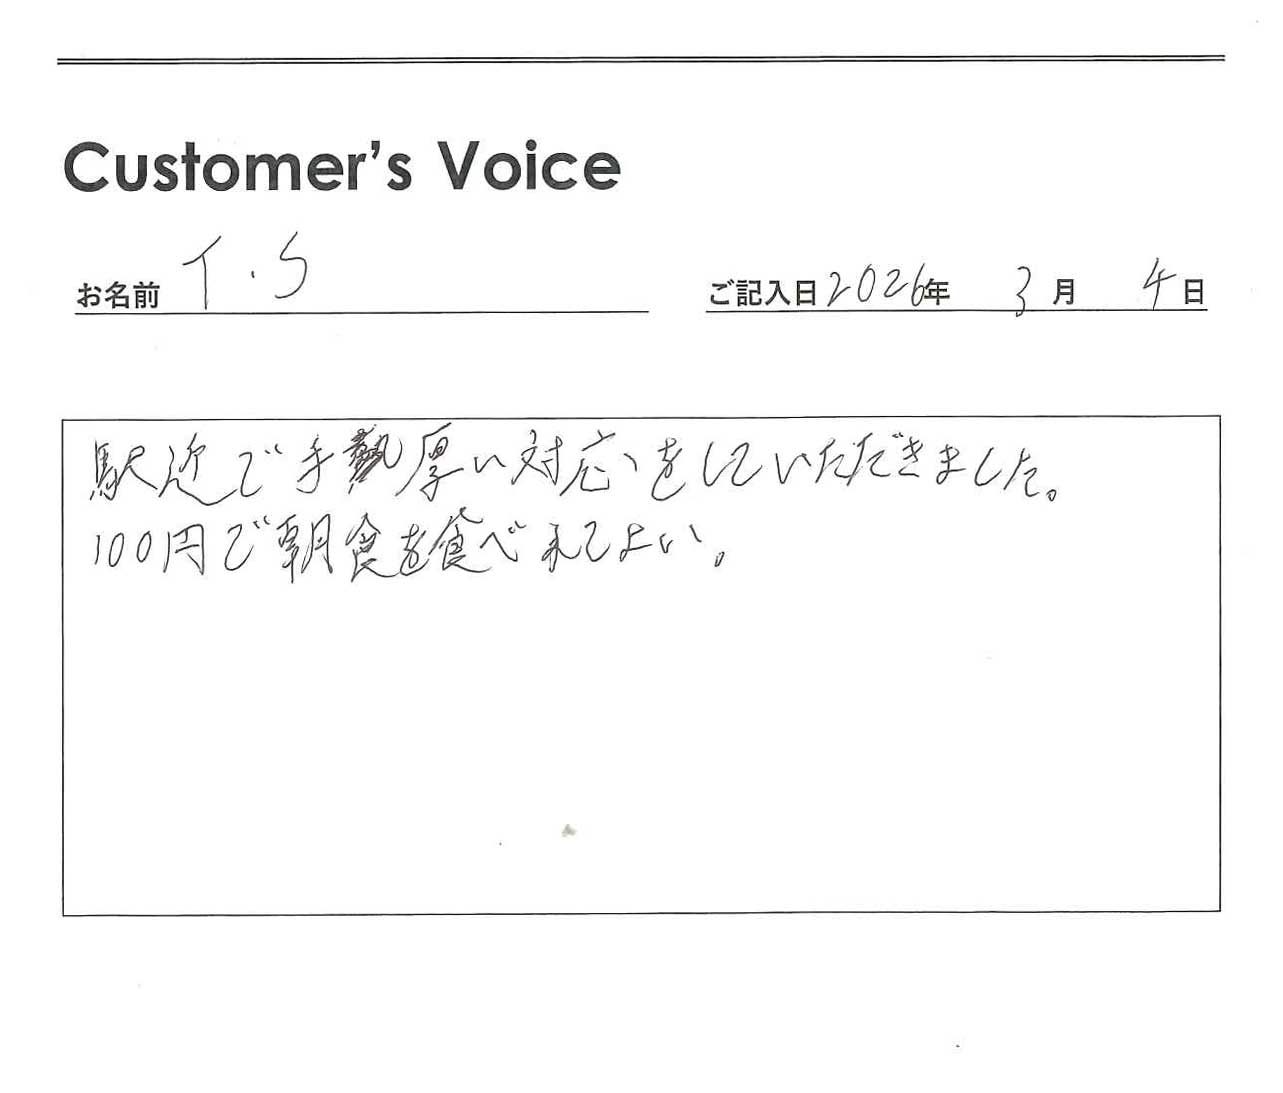 Customer's Voice
お名前 T.S
ご記入日 2026年 3月 4日
駅近で手厚い対応をしていただきました。
100円で朝食を食べれてよい。